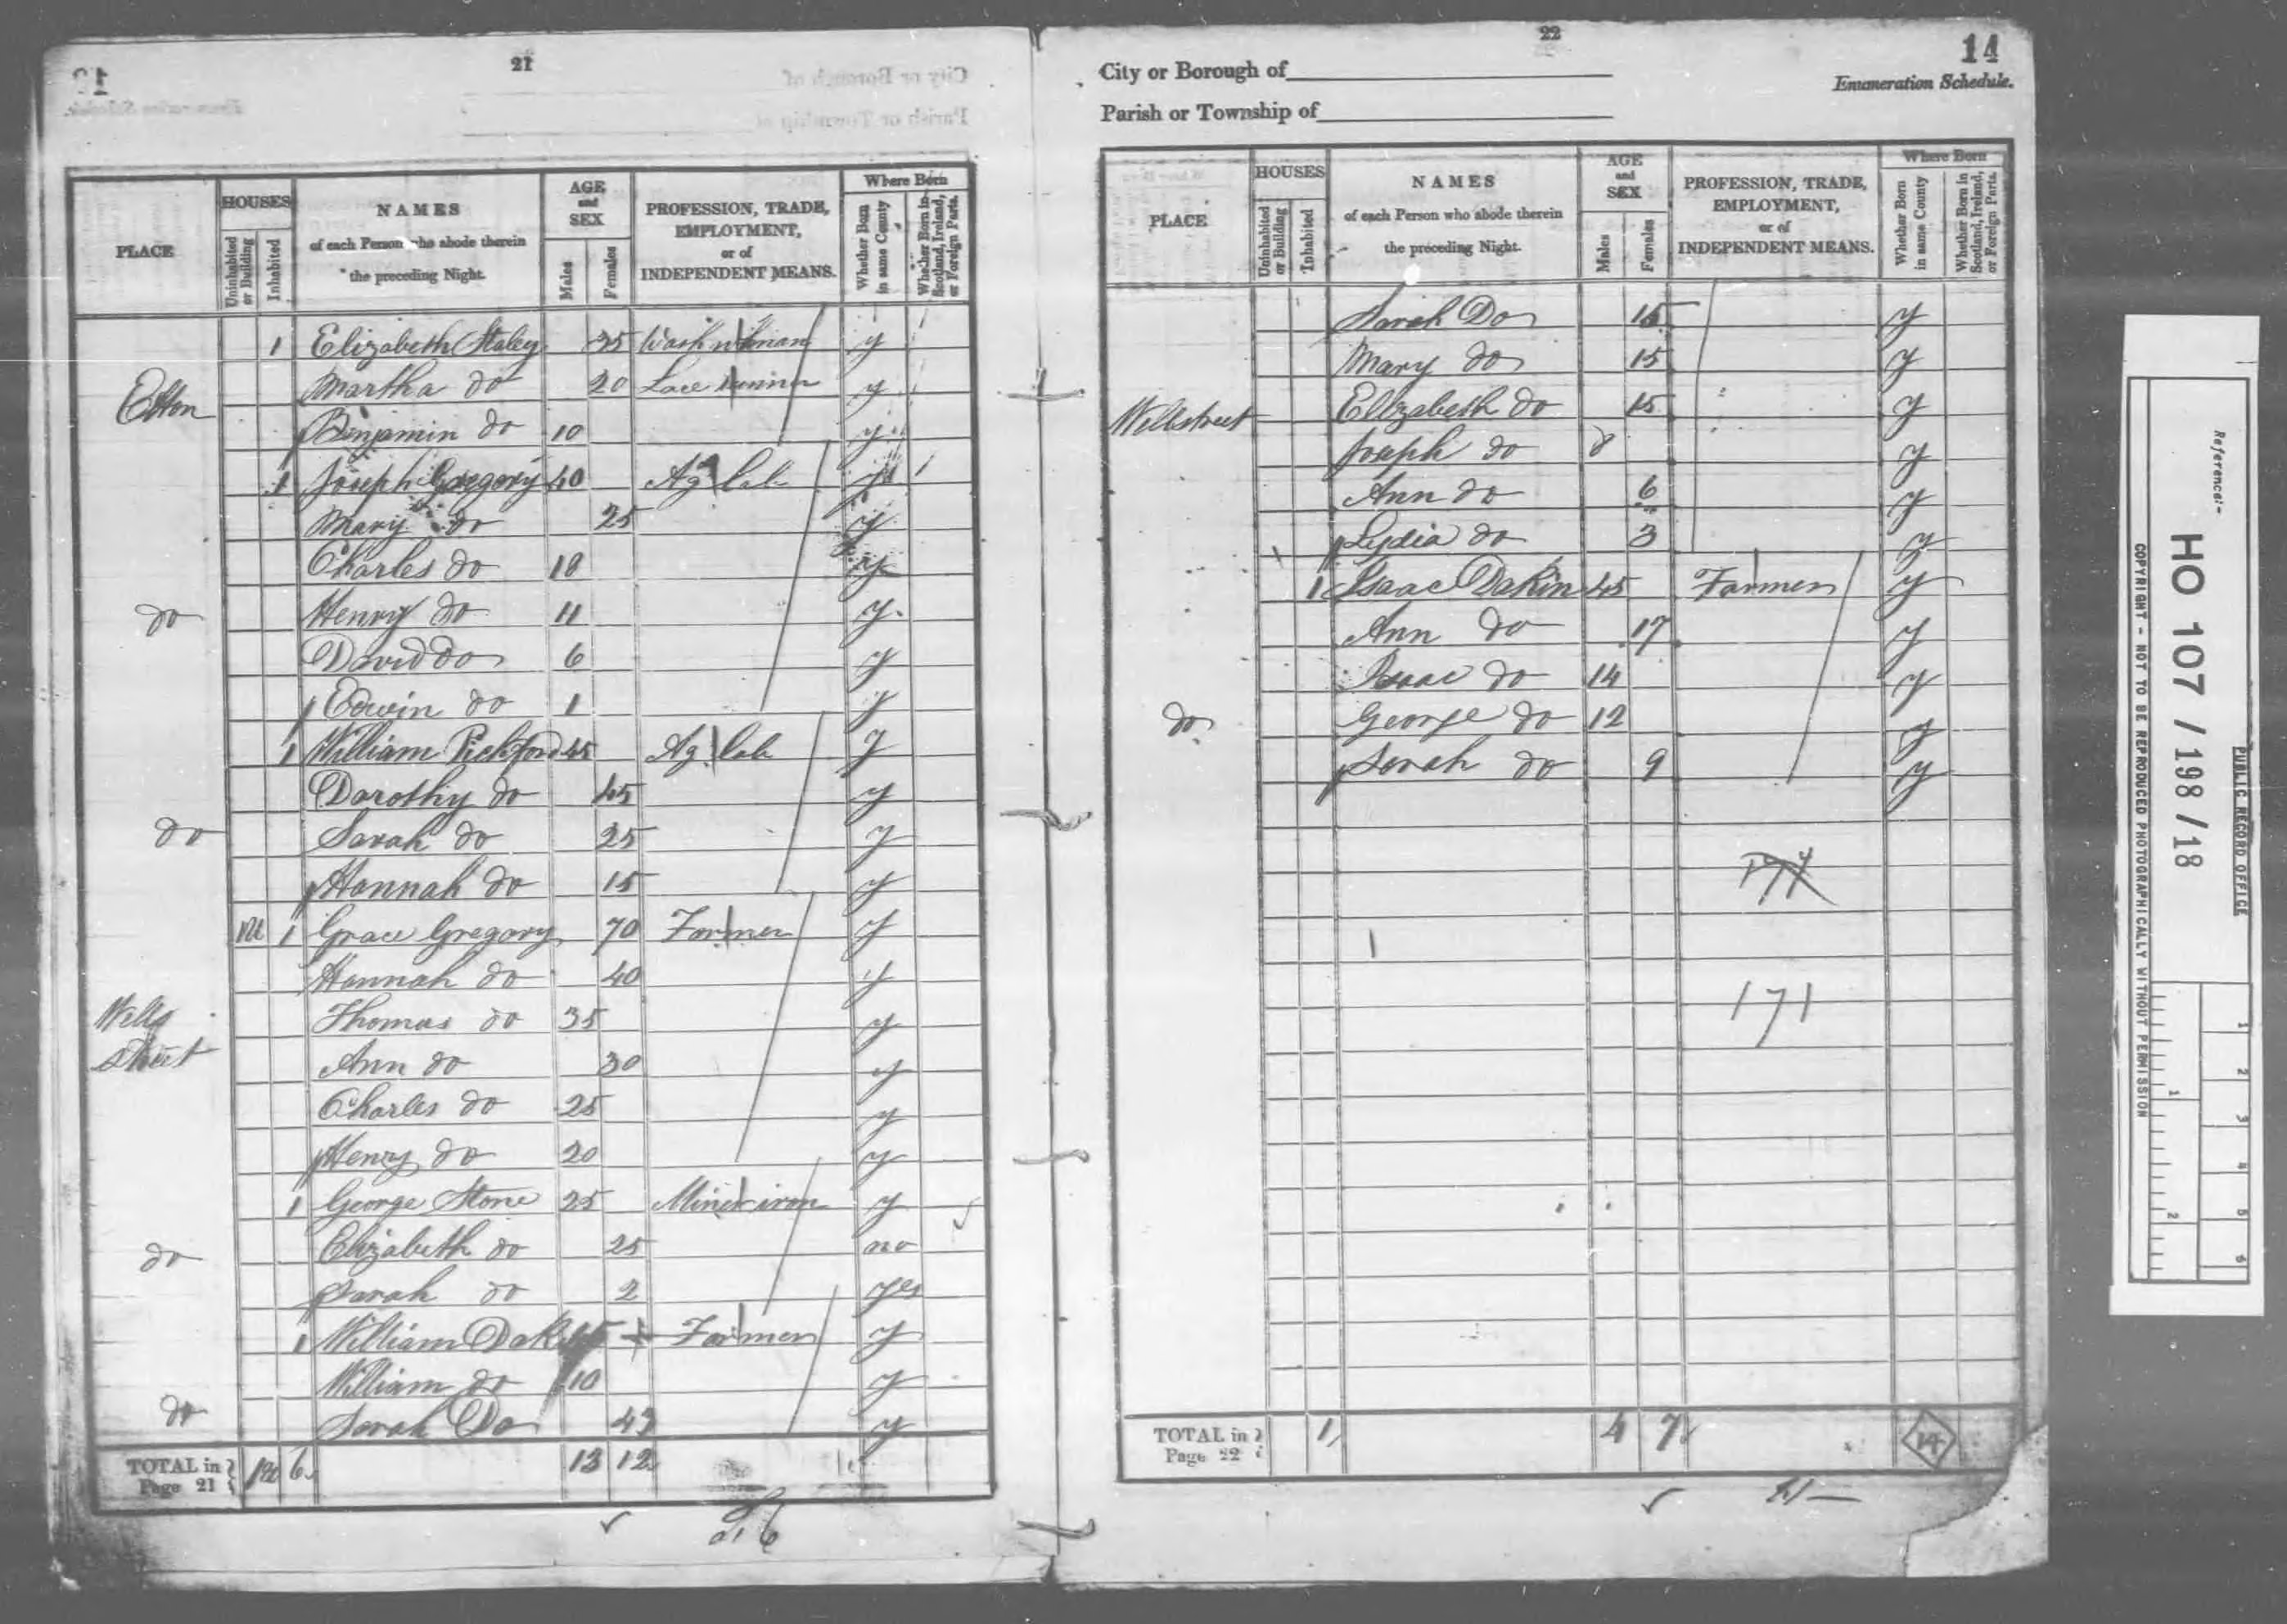 21
City or Borough of
Parish or Township of
PLACE
HOUSES
Uninhabited or Building
Inhabited
NAMES
of each Person who abode therein
the preceding Night.
AGE and SEX
Males
Females
PROFESSION, TRADE, EMPLOYMENT, or of INDEPENDENT MEANS.
Where Born
Whether Born in same County
Whether Born in Scotland, Ireland, or Foreign Parts.
1 Elizabeth Staley 35 y
Martha do 20 Lace Runner y
Benjamin do 10 y
1 Joseph Gregory 40 Ag Lab y
Mary do 25 y
Charles do y
do Henry do 11 y
David do 6 y
Edwin do 1 y
1 William Pickford 45 Ag Lab y
Dorothy do 45 y
do Sarah do 25 y
Hannah do 15 y
1 Grace Gregory 70 Farmer y
Hannah do 40 y
Thomas do 35 y
street Ann do 30 y
Charles do 25 y
Henry do 20 y
1 George Stone 25 Miner iron y
do Elizabeth do 25 no
Sarah do 2 yes
1 William Farmer y
William do 10 y
do Sarah Do y
TOTAL in Page 21 6 13 12
22
14
City or Borough of
Enumeration Schedule.
Parish or Township of
PLACE
HOUSES
Uninhabited or Building
Inhabited
NAMES
of each Person who abode therein
the preceding Night.
AGE and SEX
Males
Females
PROFESSION, TRADE, EMPLOYMENT, or of INDEPENDENT MEANS.
Where Born
Whether Born in same County
Whether Born in Scotland, Ireland, or Foreign Parts.
Sarah Do 15 y
Mary do 15 y
Wellstreet Elizabeth do 15 y
Joseph do 8 y
Ann do 6 y
Lydia do 3 y
1 Isaac Dakin 45 Farmer y
Ann do 17 y
Isaac do 14 y
do George do 12 y
Sarah do 9 y
171
TOTAL in Page 22 1 4 7
14
Reference:-
HO 107 / 198 / 18
PUBLIC RECORD OFFICE
COPYRIGHT - NOT TO BE REPRODUCED PHOTOGRAPHICALLY WITHOUT PERMISSION
1 2 3 4 5 6
1 2